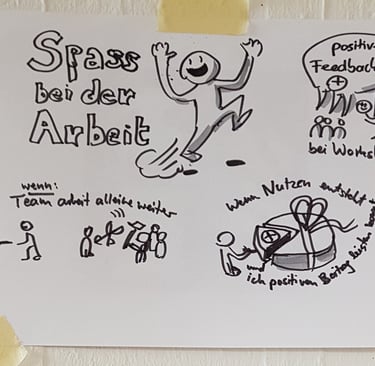 Spass
bei der
Arbeit
positiv
Feedback
bei Works
wenn:
Team arbeit alleine weiter
wenn Nutzen entsteht
und
ich positiven Beitrag leisten